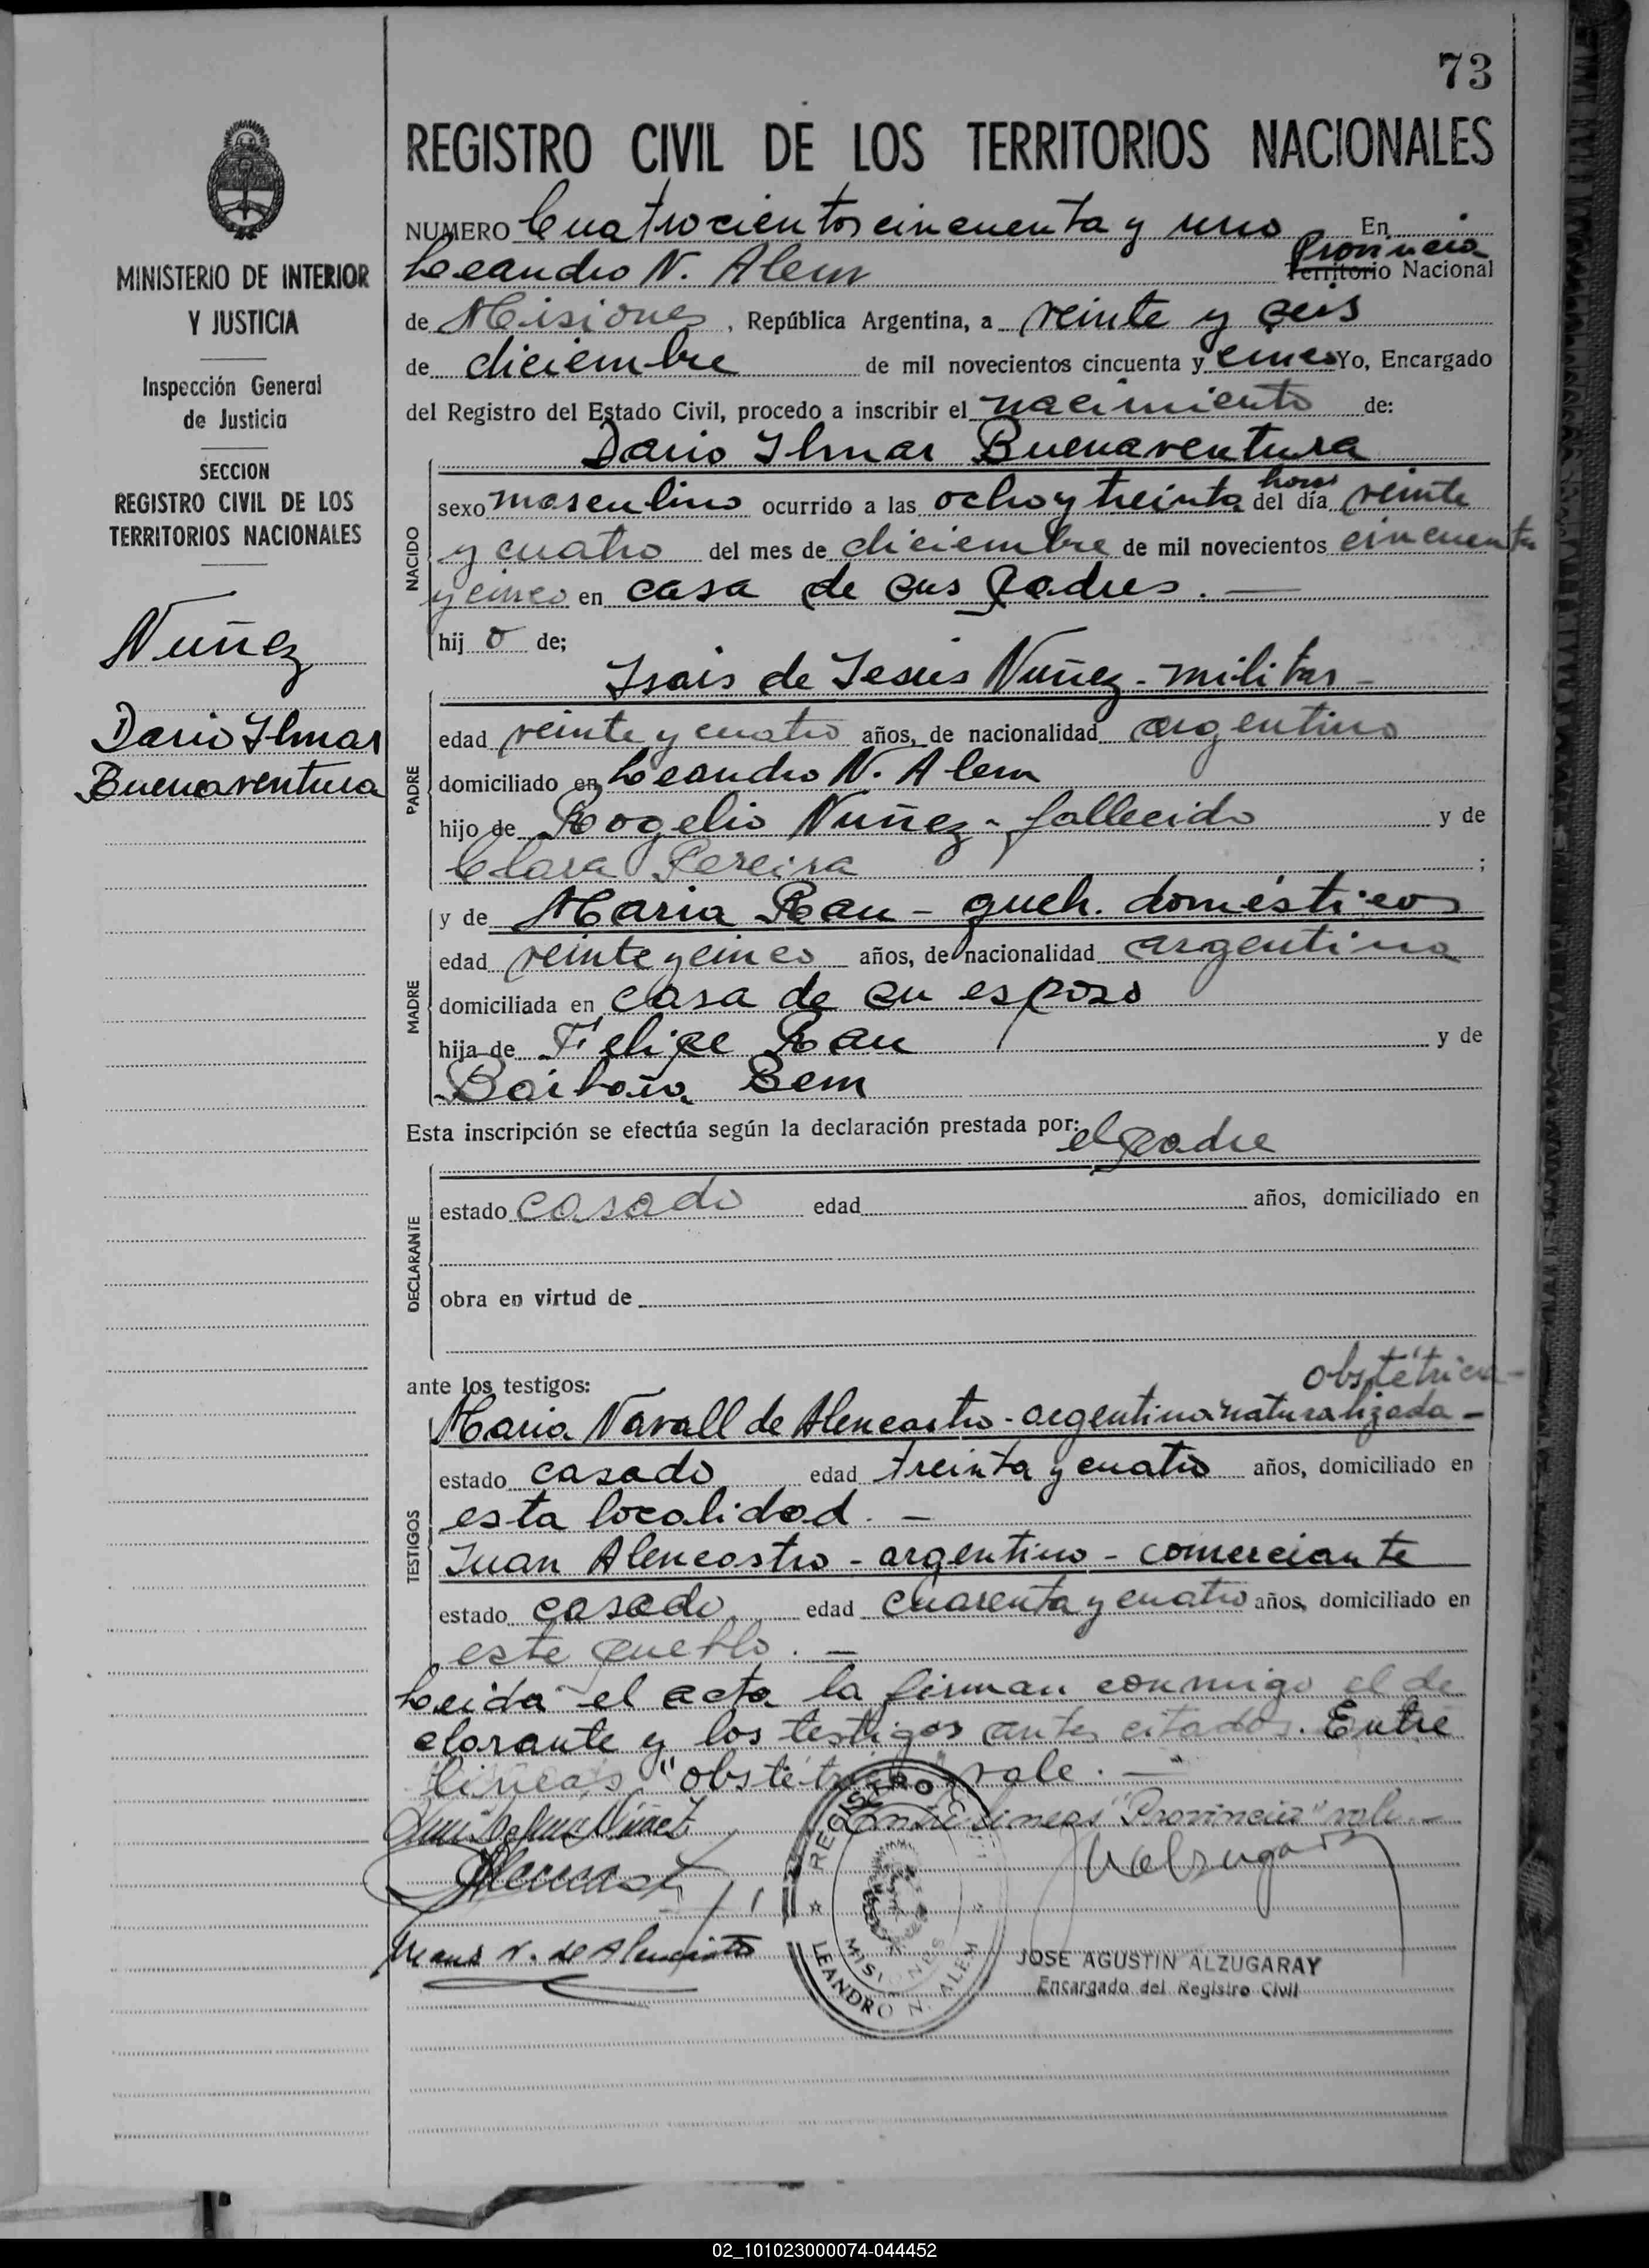 73
REGISTRO CIVIL DE LOS TERRITORIOS NACIONALES
MINISTERIO DE INTERIOR
Y JUSTICIA
Inspección General
de Justicia
SECCION
REGISTRO CIVIL DE LOS
TERRITORIOS NACIONALES
Nuñez
Dario Ilmar
Buenaventura
NUMERO Cuatrocientos cincuenta y uno En
Provincia
Leandro N. Alem Territorio Nacional
de Misiones, República Argentina, a veinte y seis
de diciembre de mil novecientos cincuenta y cinco Yo, Encargado
del Registro del Estado Civil, procedo a inscribir el nacimiento de:
Dario Ilmar Buenaventura
NACIDO
horas
sexo masculino ocurrido a las ocho y treinta del día veinte
y cuatro del mes de diciembre de mil novecientos cincuenta
y cinco en casa de sus padres. —
hij o de;
PADRE
Isais de Jesus Nuñez - militar -
edad veinte y cuatro años, de nacionalidad argentino
domiciliado en Leandro N. Alem
hijo de Rogelio Nuñez - fallecido y de
Clara Pereira ;
MADRE
y de Maria Rau - queh. domésticos
edad veinte y cinco años, de nacionalidad argentina
domiciliada en casa de su esposo
hija de Felipe Rau y de
Bárbara Bem
Esta inscripción se efectúa según la declaración prestada por: el padre
DECLARANTE
estado casado edad años, domiciliado en
obra en virtud de
ante los testigos:
obstétrica -
TESTIGOS
Maria Navall de Alencastro - argentina naturalizada -
estado casado edad treinta y cuatro años, domiciliado en
esta localidad. —
Juan Alencastro - argentino - comerciante
estado casado edad cuarenta y cuatro años, domiciliado en
este pueblo. —
Leida el acta la firman conmigo el de
clarante y los testigos antes citados. Entre
lineas "obstétrica" vale. —
Entre lineas "Provincia" vale. —
Maria N. de Alencastro
REGISTRO
MISIONES
LEANDRO N. ALEM
JOSE AGUSTIN ALZUGARAY
Encargado del Registro Civil
02_101023000074-044452